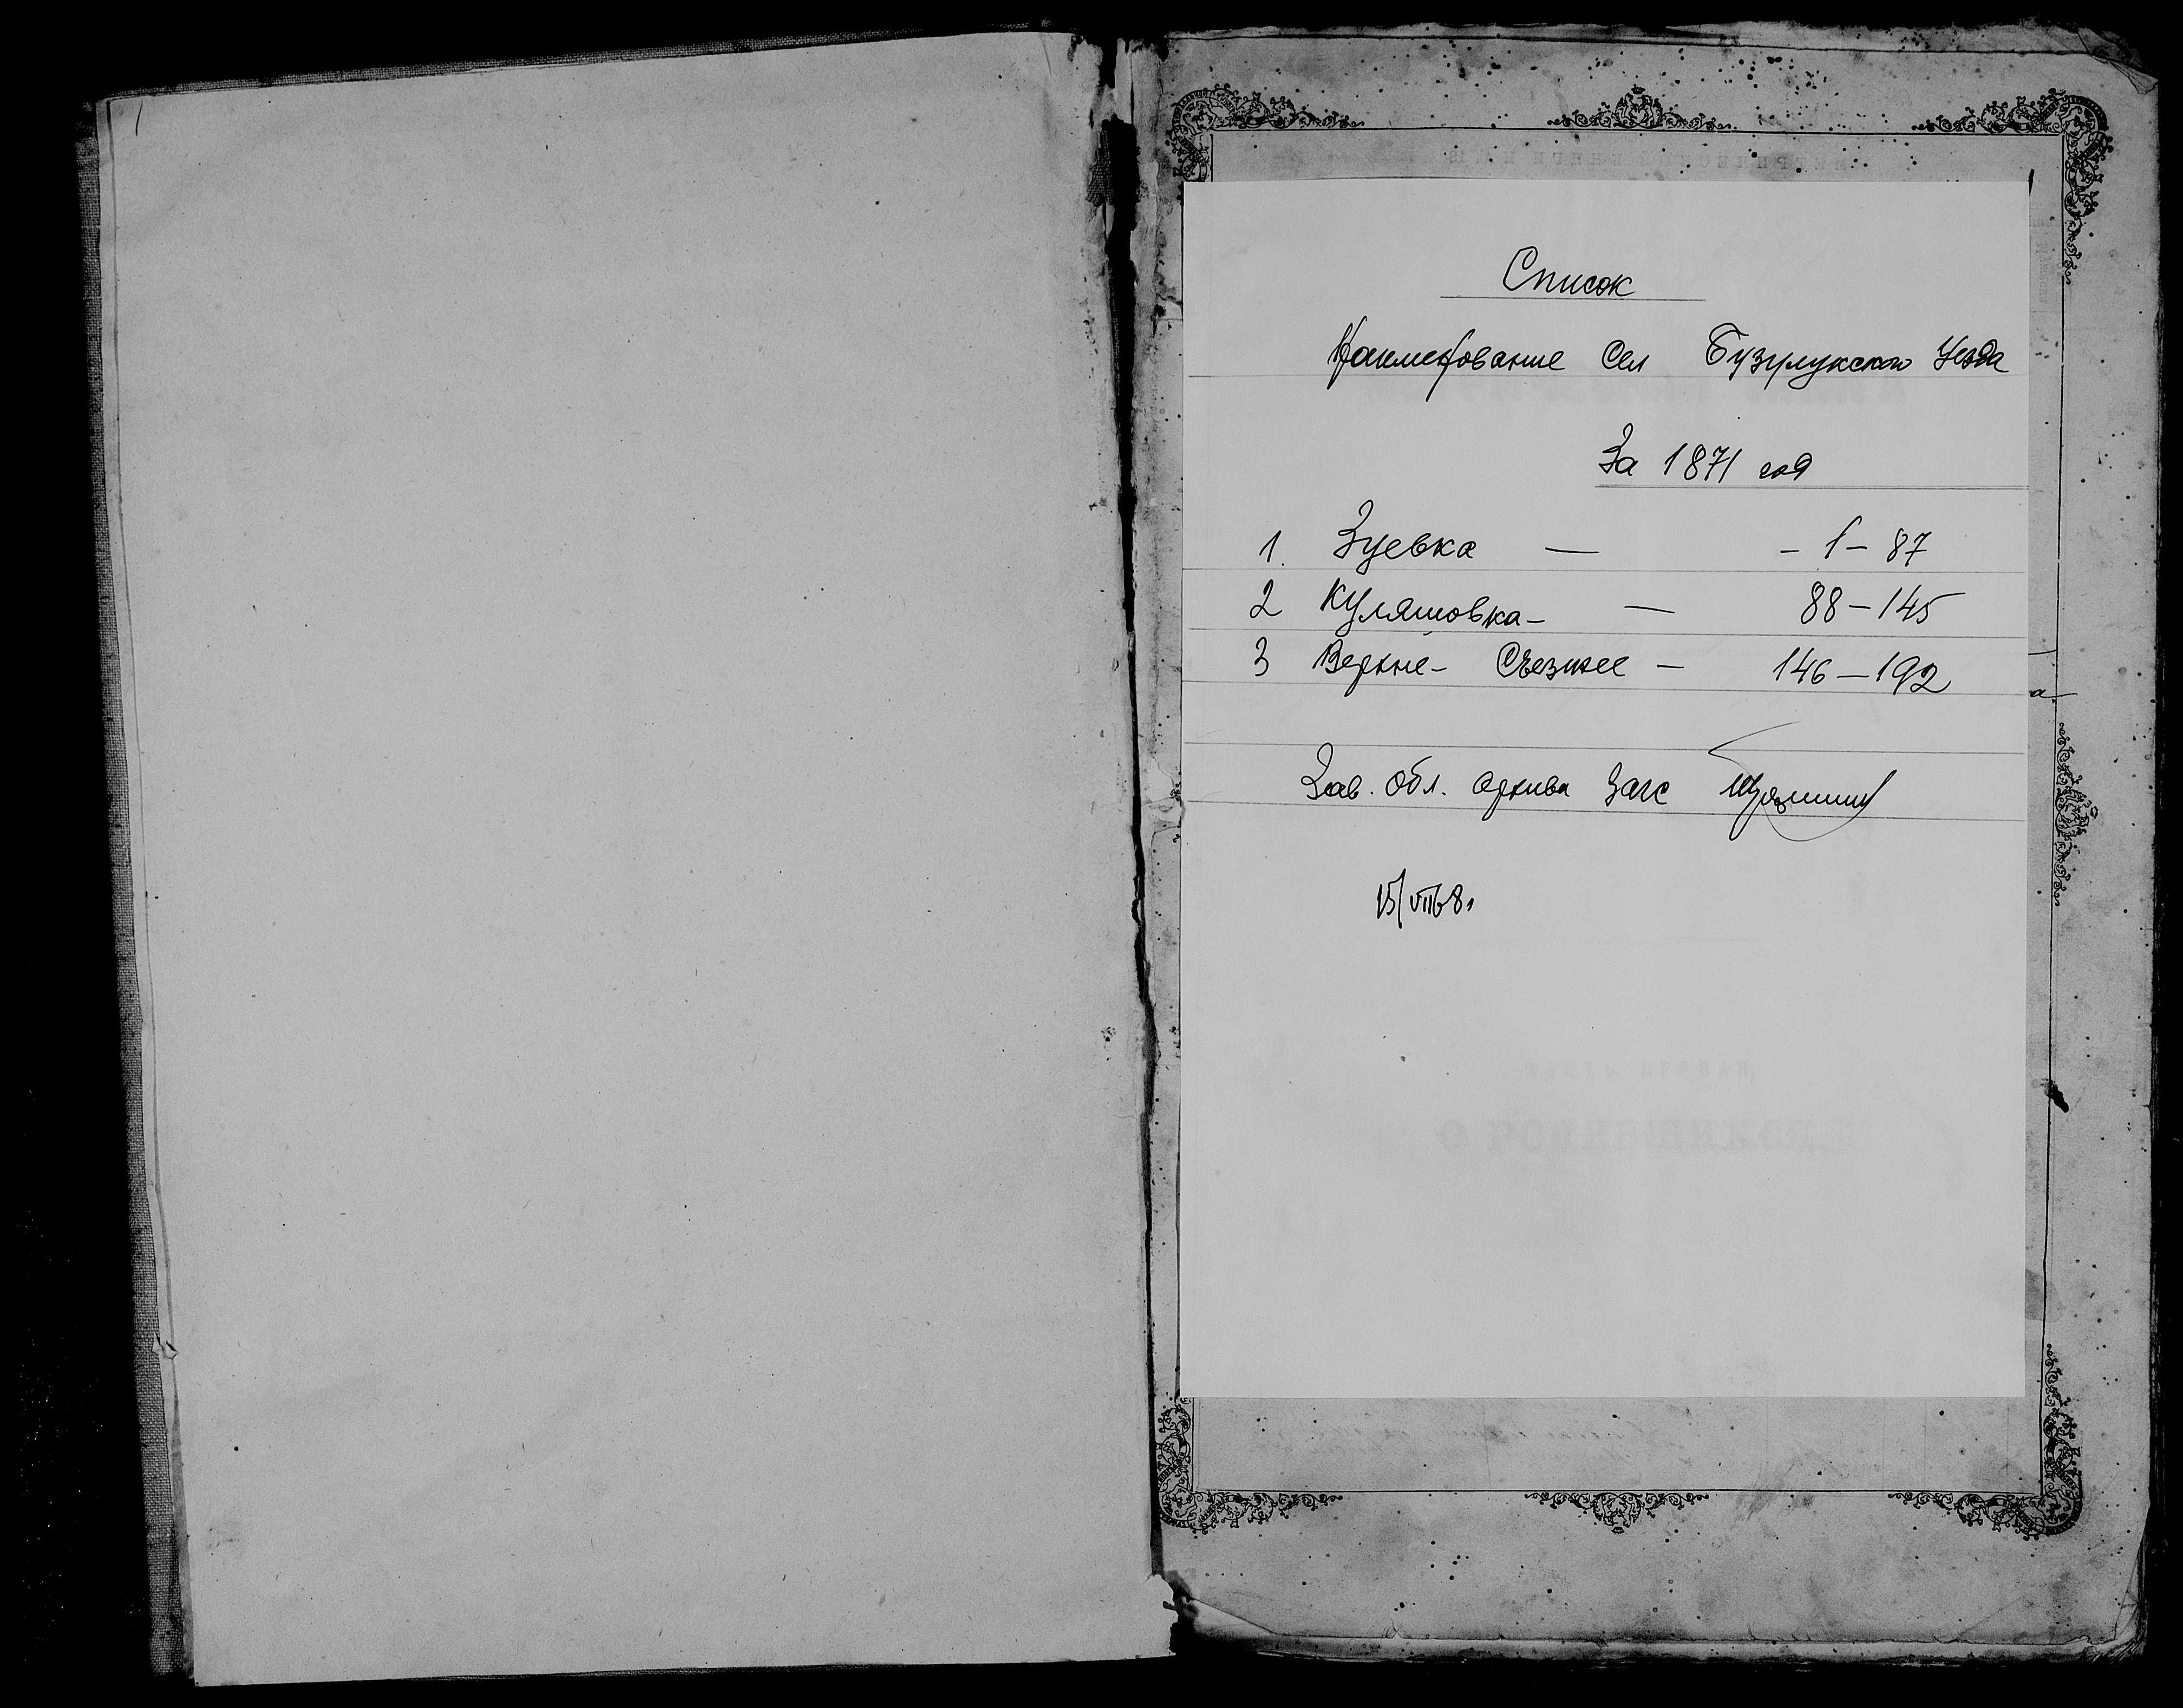 Список
Наименование Сел Бузулукского Уезда
За 1871 год
1. Зуевка — - 1 - 87
2 Куляшовка - — 88 - 145
3 Верхне - Съезжее - 146 - 192
Зав. Обл. архива Загс
15/VII 68г
О РОДИВШИХСЯ